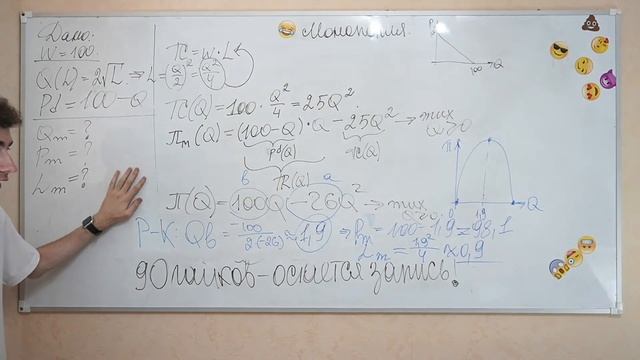 Дано:
W = 100.
Q(L) = 2√L ⇒ L = (Q/2)² = Q²/4
Pd = 100 - Q
Qm = ?
Pm = ?
Lm = ?
😄 Монополия.
TC = W · L
TC(Q) = 100 · Q²/4 = 25Q².
Пm(Q) = (100 - Q) · Q - 25Q² → max
Q ≥ 0
Pd(Q) TC(Q)
TR(Q)
b a
П(Q) = 100Q - 26Q² → max
Q ≥ 0
Р-К: Qb = -100/2·(-26) ≈ 1,9 ⇒ Pm = 100 - 1,9 = 98,1
Lm = 1,9²/4 ≈ 0,9
90 лайков - остаётся запись.
P
100 Q
П
0 1,9 Q